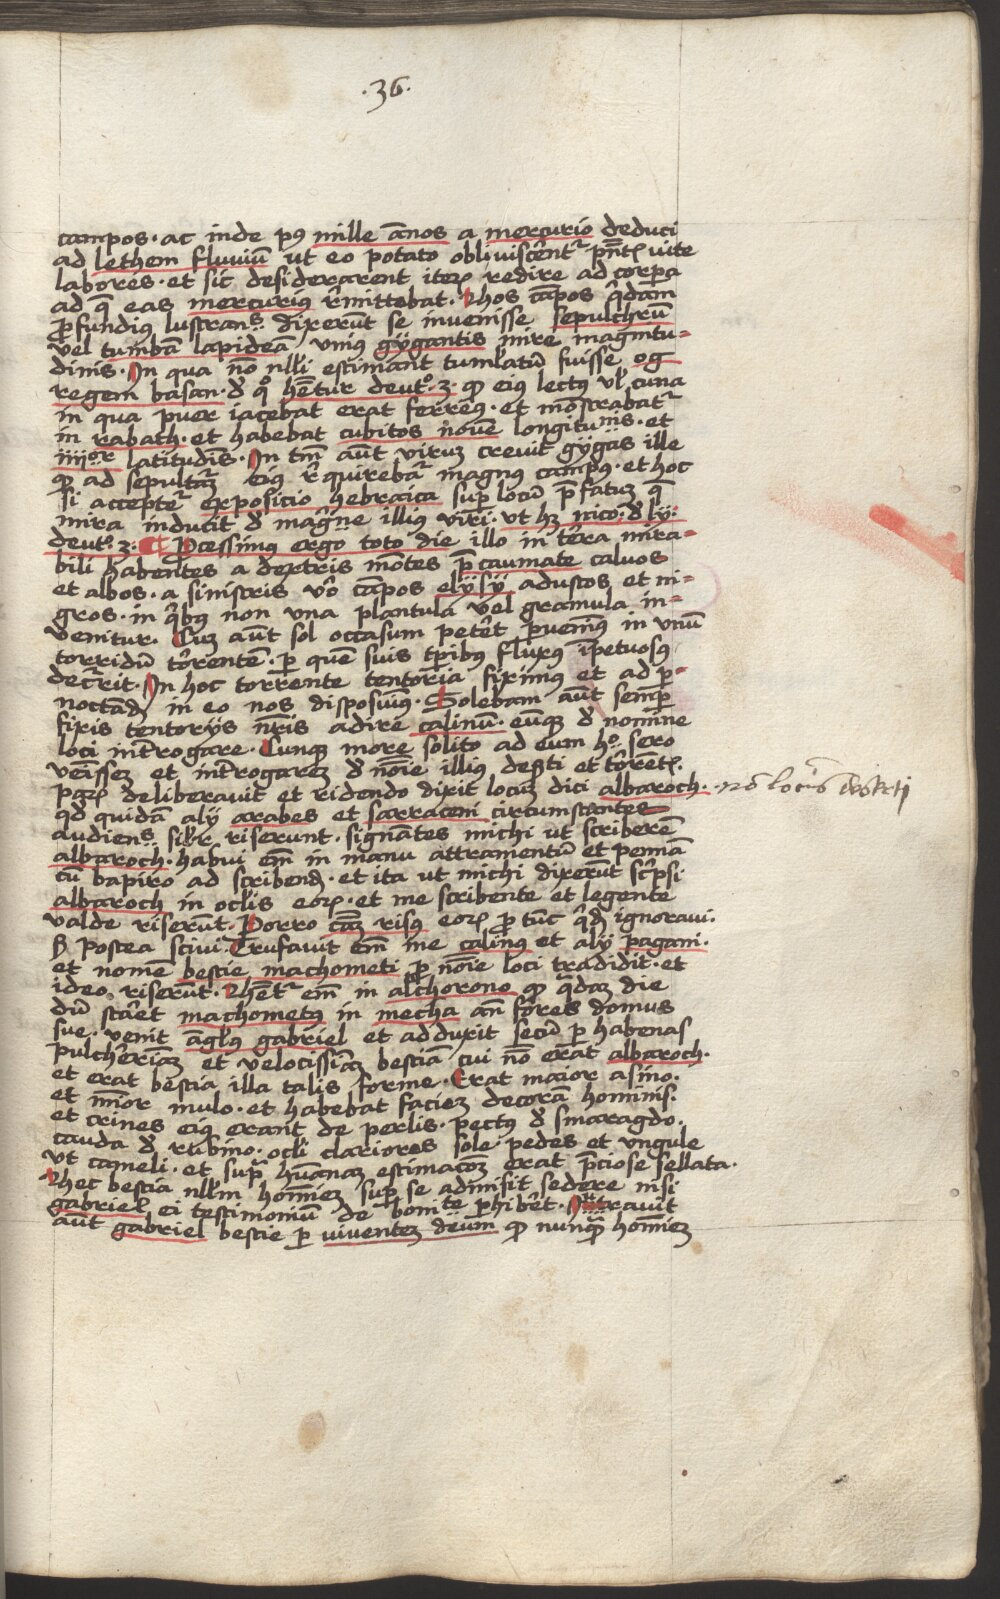 .36.
campos. ac inde p9 mille ānos a mercurio deduci
ad lethem fluviū ut eo potato obliviscēnt² pn̄t vite
labores. et sic desiderarent iteꝝ redire ad corpa
ad q̄ eas mercurius r̄mittebat. Hos cāpos q̄dam
ꝓfundi9 lustrans dixerūt se invenisse sepulchrū
vel tumbā lapideā uni9 gygantis mire magnitu=
dinis. In qua nō nlli estimant tumlatū fuisse og
regem basan. d̄ qº hētur deutº. 3. ꝙ ei9 lect9 vl' cuna
in qua puer iacebat erat ferre9. et mōstrabat²
in rabath. et habebat cubitos novē longitudinis. et
iiiior latitudis. In tm̄ aūt virus crevit gygas ille
ꝙ ad sepultuaʒ ei9 r̄quirebat² magn9 camp9. et hoc
si acceptet² expositio hebraica sup locū p̄fatuʒ q̄
mira inducit d̄ magīne illius viri. ut hʒ nico. d̄ ly.
deut. 3. Pcessim9 ergo toto die illo in tērā mira=
bili habentes a dextris mōtes p̄ caumate calvos
et albos. a sinistris vō campos elysÿ adustos et ni=
gros. in q̄bus non una plantula vel gramula in=
venitur. Cum aūt sol occasum petēt pvenim9 in unū
torridū tōrentē. p quē suis tpib9 flux9 īpetuos9
decrit. In hoc torrente tentoria fixim9 et ad p=
noctādʒ in eo nos disposuim9. Solebam aūt semp
fixis tentorÿs nr̄is adire calinū. eūqʒ d̄ nomine
loci int̄rogare. Cunqʒ more solito ad eum hº sero
venissem et int̄rogareʒ d̄ nōie illius deseti et tōrēt.
paꝝ deliberavit et ridendo dixit locuʒ dici albaroch.
qd̄ quidā alÿ arabes et sarraceni circumstantes
audiens siłr riserunt. signātes michi ut scriberē
albaroch. habui em̄ in manu attramentū et pennā
cū bapiro ad scribendʒ. et ita ut michi dixerūt sc̄psi
albaroch in oclis eoꝝ. et me scribente et legente
valde riserūt. Porro cāʒ risus eoꝝ ꝓ tūc q̄d ignoravi.
ß postea scivi. Trufavit em̄ me calin9 et alÿ pagani.
et nomē bestie machometi ꝓ nōie loci tradidit. et
ideo riserūt. Hēt² em̄ in alchorono ꝙ q̄daʒ die
dū stāret machomet9 in mecha an̄ fōres domus
sue. venit āgls gabriel et adduxit secū p habenas
pulcherimā et velocissimā bestiā cui nō erāt albaroch.
et erat bestia illa talis forme. Erat maior asino.
et mīor mulo. et habebat facieʒ decorā hominis.
et crines ei9 erant de perlis. pect9 d̄ smaragdo.
cauda d̄ rubino. ocli clariores sole. pedes et ungule
ut cameli. et sup̄ hūanaʒ estimacōeʒ erat p̄ciose sellata.
Hec bestia nllm homīeʒ sup se admisit sedere nisi
gabriel ei testimoniū de bonite phibēt. Intravit
aūt gabriel bestie p viventeʒ deum ꝙ nunq̄ʒ homīeʒ